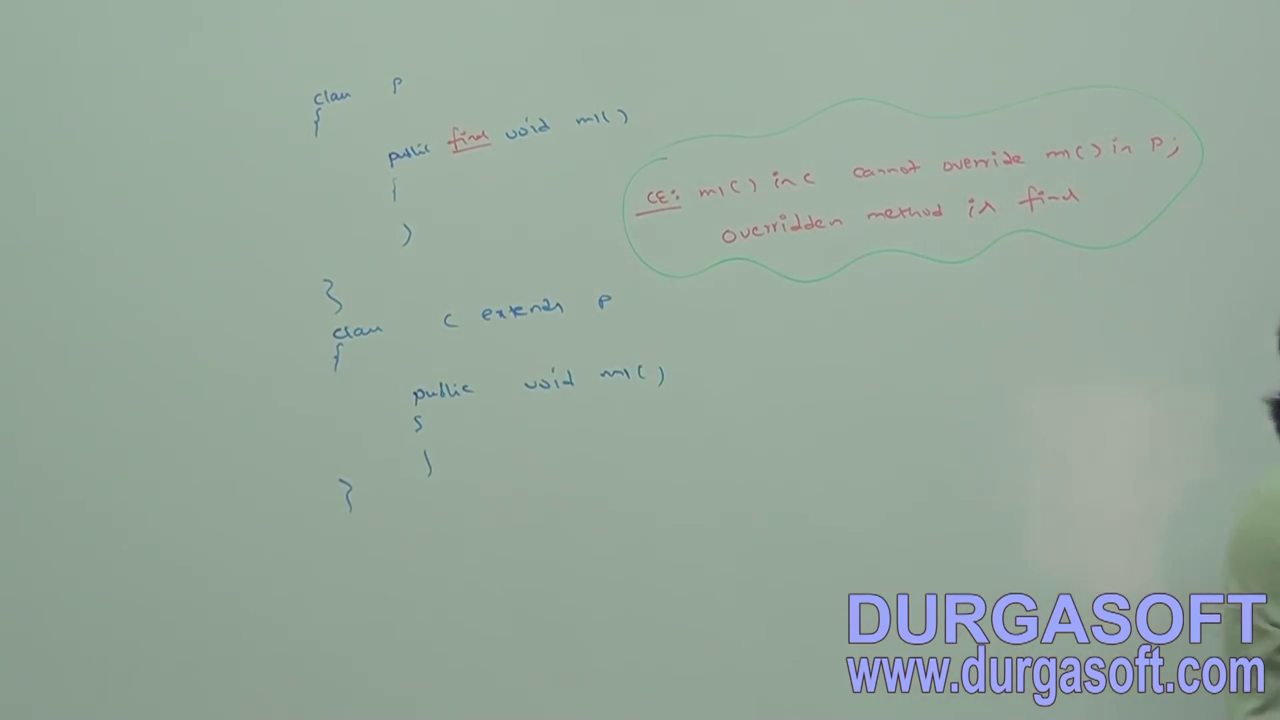 class P
{
public final void m1()
{
}
}
class C extends P
{
public void m1()
{
}
}
CE: m1() in C cannot override m1() in P;
overridden method is final
DURGASOFT
www.durgasoft.com